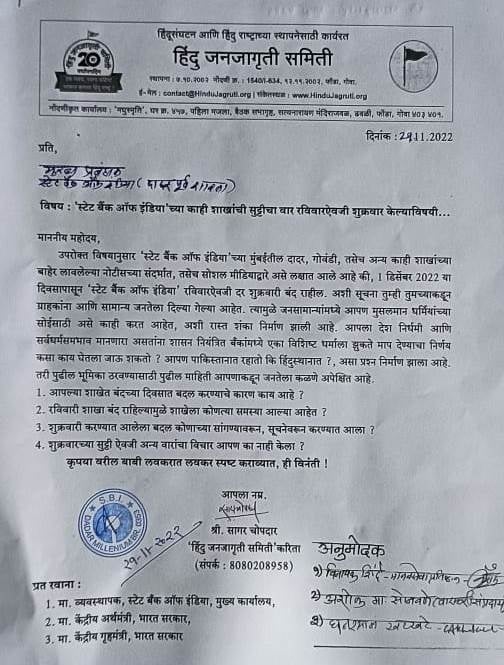 हिंदूसंघटन आणि हिंदु राष्ट्राच्या स्थापनेसाठी कार्यरत
हिंदु जनजागृती समिती
20
स्थापना : ७.१०.२००२ नोंदणी क्र. : 1540/I-834, १२.११.२००२, फोंडा, गोवा.
ई-मेल : contact@HinduJagruti.org | संकेतस्थळ : www.HinduJagruti.org
नोंदणीकृत कार्यालय : 'मधुस्मृति', घर क्र. ४५७, पहिला मजला, बैठक सभागृह, सत्यनारायण मंदिराजवळ, ढवळी, फोंडा, गोवा ४०३ ४०१.
दिनांक : 29.11.2022
प्रति,
मुख्य प्रबंधक
स्टेट बँक ऑफ इंडिया (दादर पूर्व शाखा)
विषय : 'स्टेट बँक ऑफ इंडिया'च्या काही शाखांची सुट्टीचा वार रविवारऐवजी शुक्रवार केल्याविषयी...
माननीय महोदय,
उपरोक्त विषयानुसार 'स्टेट बँक ऑफ इंडिया'च्या मुंबईतील दादर, गोवंडी, तसेच अन्य काही शाखांच्या
बाहेर लावलेल्या नोटीसच्या संदर्भात, तसेच सोशल मीडियाद्वारे असे लक्षात आले आहे की, 1 डिसेंबर 2022 या
दिवसापासून 'स्टेट बँक ऑफ इंडिया' रविवारऐवजी दर शुक्रवारी बंद राहील. अशी सूचना तुम्ही तुमच्याकडून
ग्राहकांना आणि सामान्य जनतेला दिल्या गेल्या आहेत. त्यामुळे जनसामान्यांमध्ये आपण मुसलमान धर्मियांच्या
सोईसाठी असे काही करत आहेत, अशी रास्त शंका निर्माण झाली आहे. आपला देश निधर्मी आणि
सर्वधर्मसमभाव मानणारा असतांना शासन नियंत्रित बँकांमध्ये एका विशिष्ट धर्माला झुकते माप देण्याचा निर्णय
कसा काय घेतला जाऊ शकतो ? आपण पाकिस्तानात रहातो कि हिंदुस्थानात ?, असा प्रश्न निर्माण झाला आहे.
तरी पुढील भूमिका ठरवण्यासाठी पुढील माहिती आपणाकडून जनतेला कळणे अपेक्षित आहे.
1. आपल्या शाखेत बंदच्या दिवसात बदल करण्याचे कारण काय आहे ?
2. रविवारी शाखा बंद राहिल्यामुळे शाखेला कोणत्या समस्या आल्या आहेत ?
3. शुक्रवारी करण्यात आलेला बदल कोणाच्या सांगण्यावरून, सूचनेवरून करण्यात आला ?
4. शुक्रवारच्या सुट्टी ऐवजी अन्य वारांचा विचार आपण का नाही केला ?
कृपया वरील बाबी लवकरात लवकर स्पष्ट कराव्यात, ही विनंती !
आपला नम्र,
श्री. सागर चोपदार
'हिंदु जनजागृती समिती'करिता
(संपर्क : 8080208958)
S.B.I.
DADAR MILLENIUM BR.
29-11-2022
अनुमोदक
प्रत रवाना :
1. मा. व्यवस्थापक, स्टेट बँक ऑफ इंडिया, मुख्य कार्यालय,
2. मा. केंद्रीय अर्थमंत्री, भारत सरकार,
3. मा. केंद्रीय गृहमंत्री, भारत सरकार